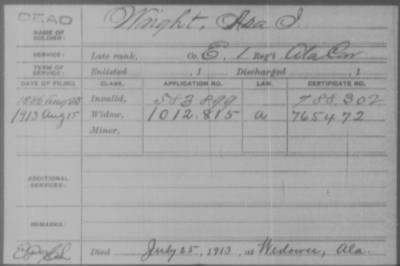 DEAD
NAME OF SOLDIER: Wright, Asa I.
SERVICE: Late rank, Co. E, 1 Reg't Ala Cav
TERM OF SERVICE: Enlisted , 1 Discharged , 1
DATE OF FILING. CLASS. APPLICATION NO. LAW. CERTIFICATE NO.
Aug 28 Invalid, 583.899 788.302
1913 Aug 15 Widow, 1012.815 a 765472
Minor,
ADDITIONAL SERVICES:
REMARKS:
Died July 25, 1913, at Wedowee, Ala.